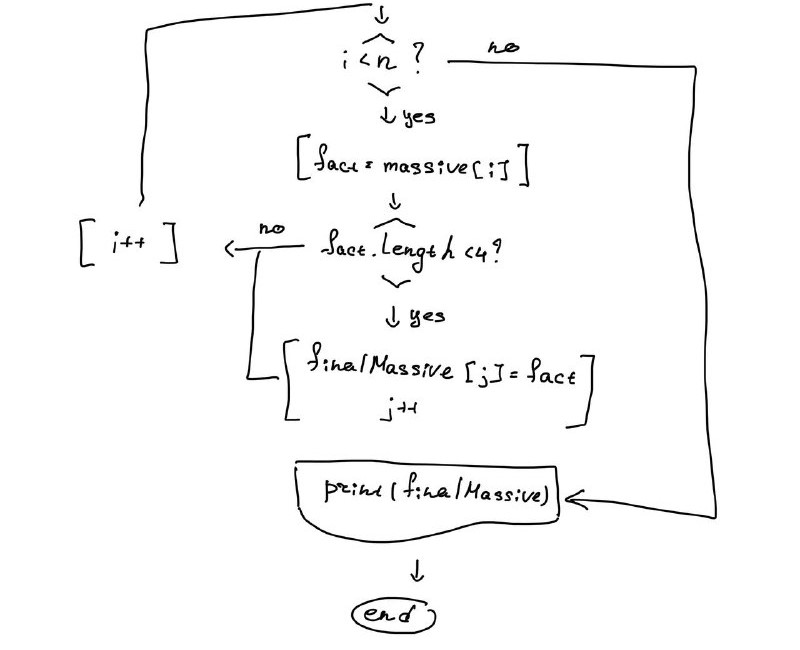 i < n ?
no
yes
[ fact = massive[i] ]
[ i++ ]
no
fact.Length < 4?
yes
[ finalMassive [j] = fact
j++ ]
print(finalMassive)
end